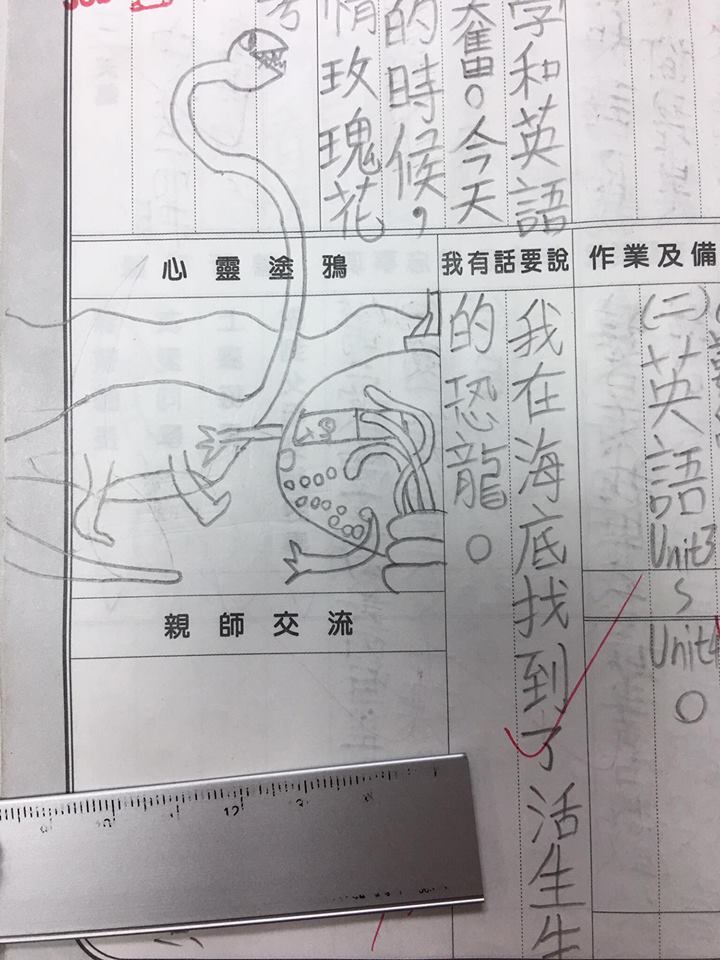 學和英語
奮。今天
的時候，
情玫瑰花
考
作業及備
我有話要說
心靈塗鴉
(二)英語Unit3
S
Unit4
。
我在海底找到了活生生
的恐龍。
親師交流